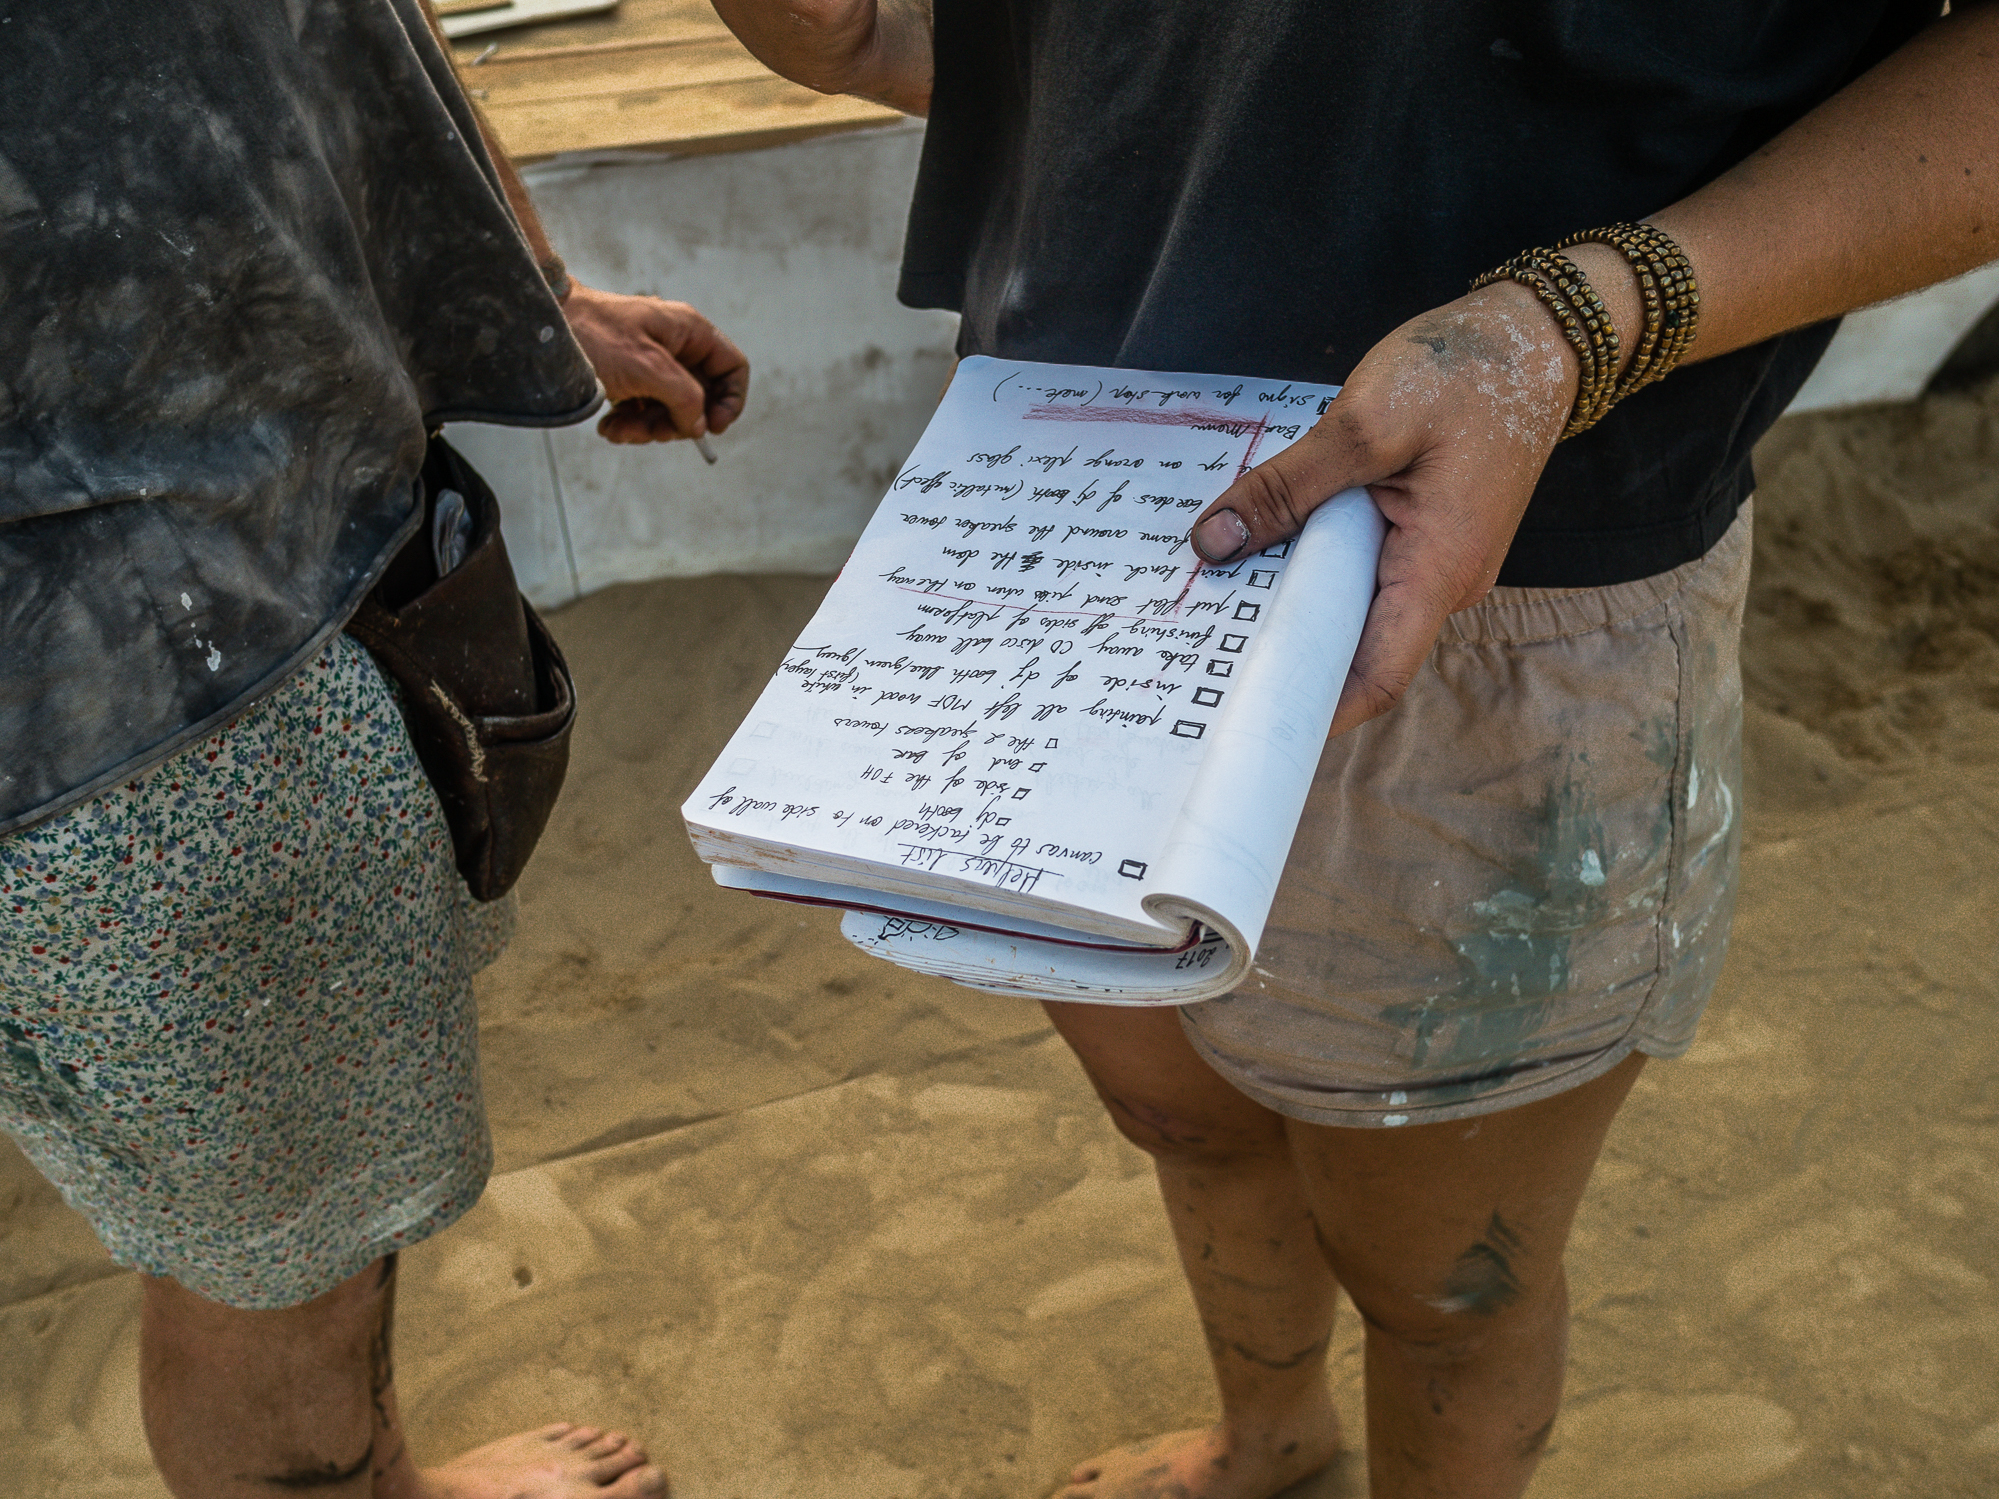 Helpers List
canvas to be tackered on to side wall of
dj booth
side of the FOH
end of bar
the 2 speakers towers
painting all left MDF wood in white
(first layer)
inside of dj booth blue/green/grey
take away CD disco ball away
finishing off sides of platform
put flat sand when on the way
paint bench inside the dom
frame around the speaker tower
boarders of dj booth (metallic effect)
up on orange plexi glass
Bar
signs for work stop (mek...)
2017